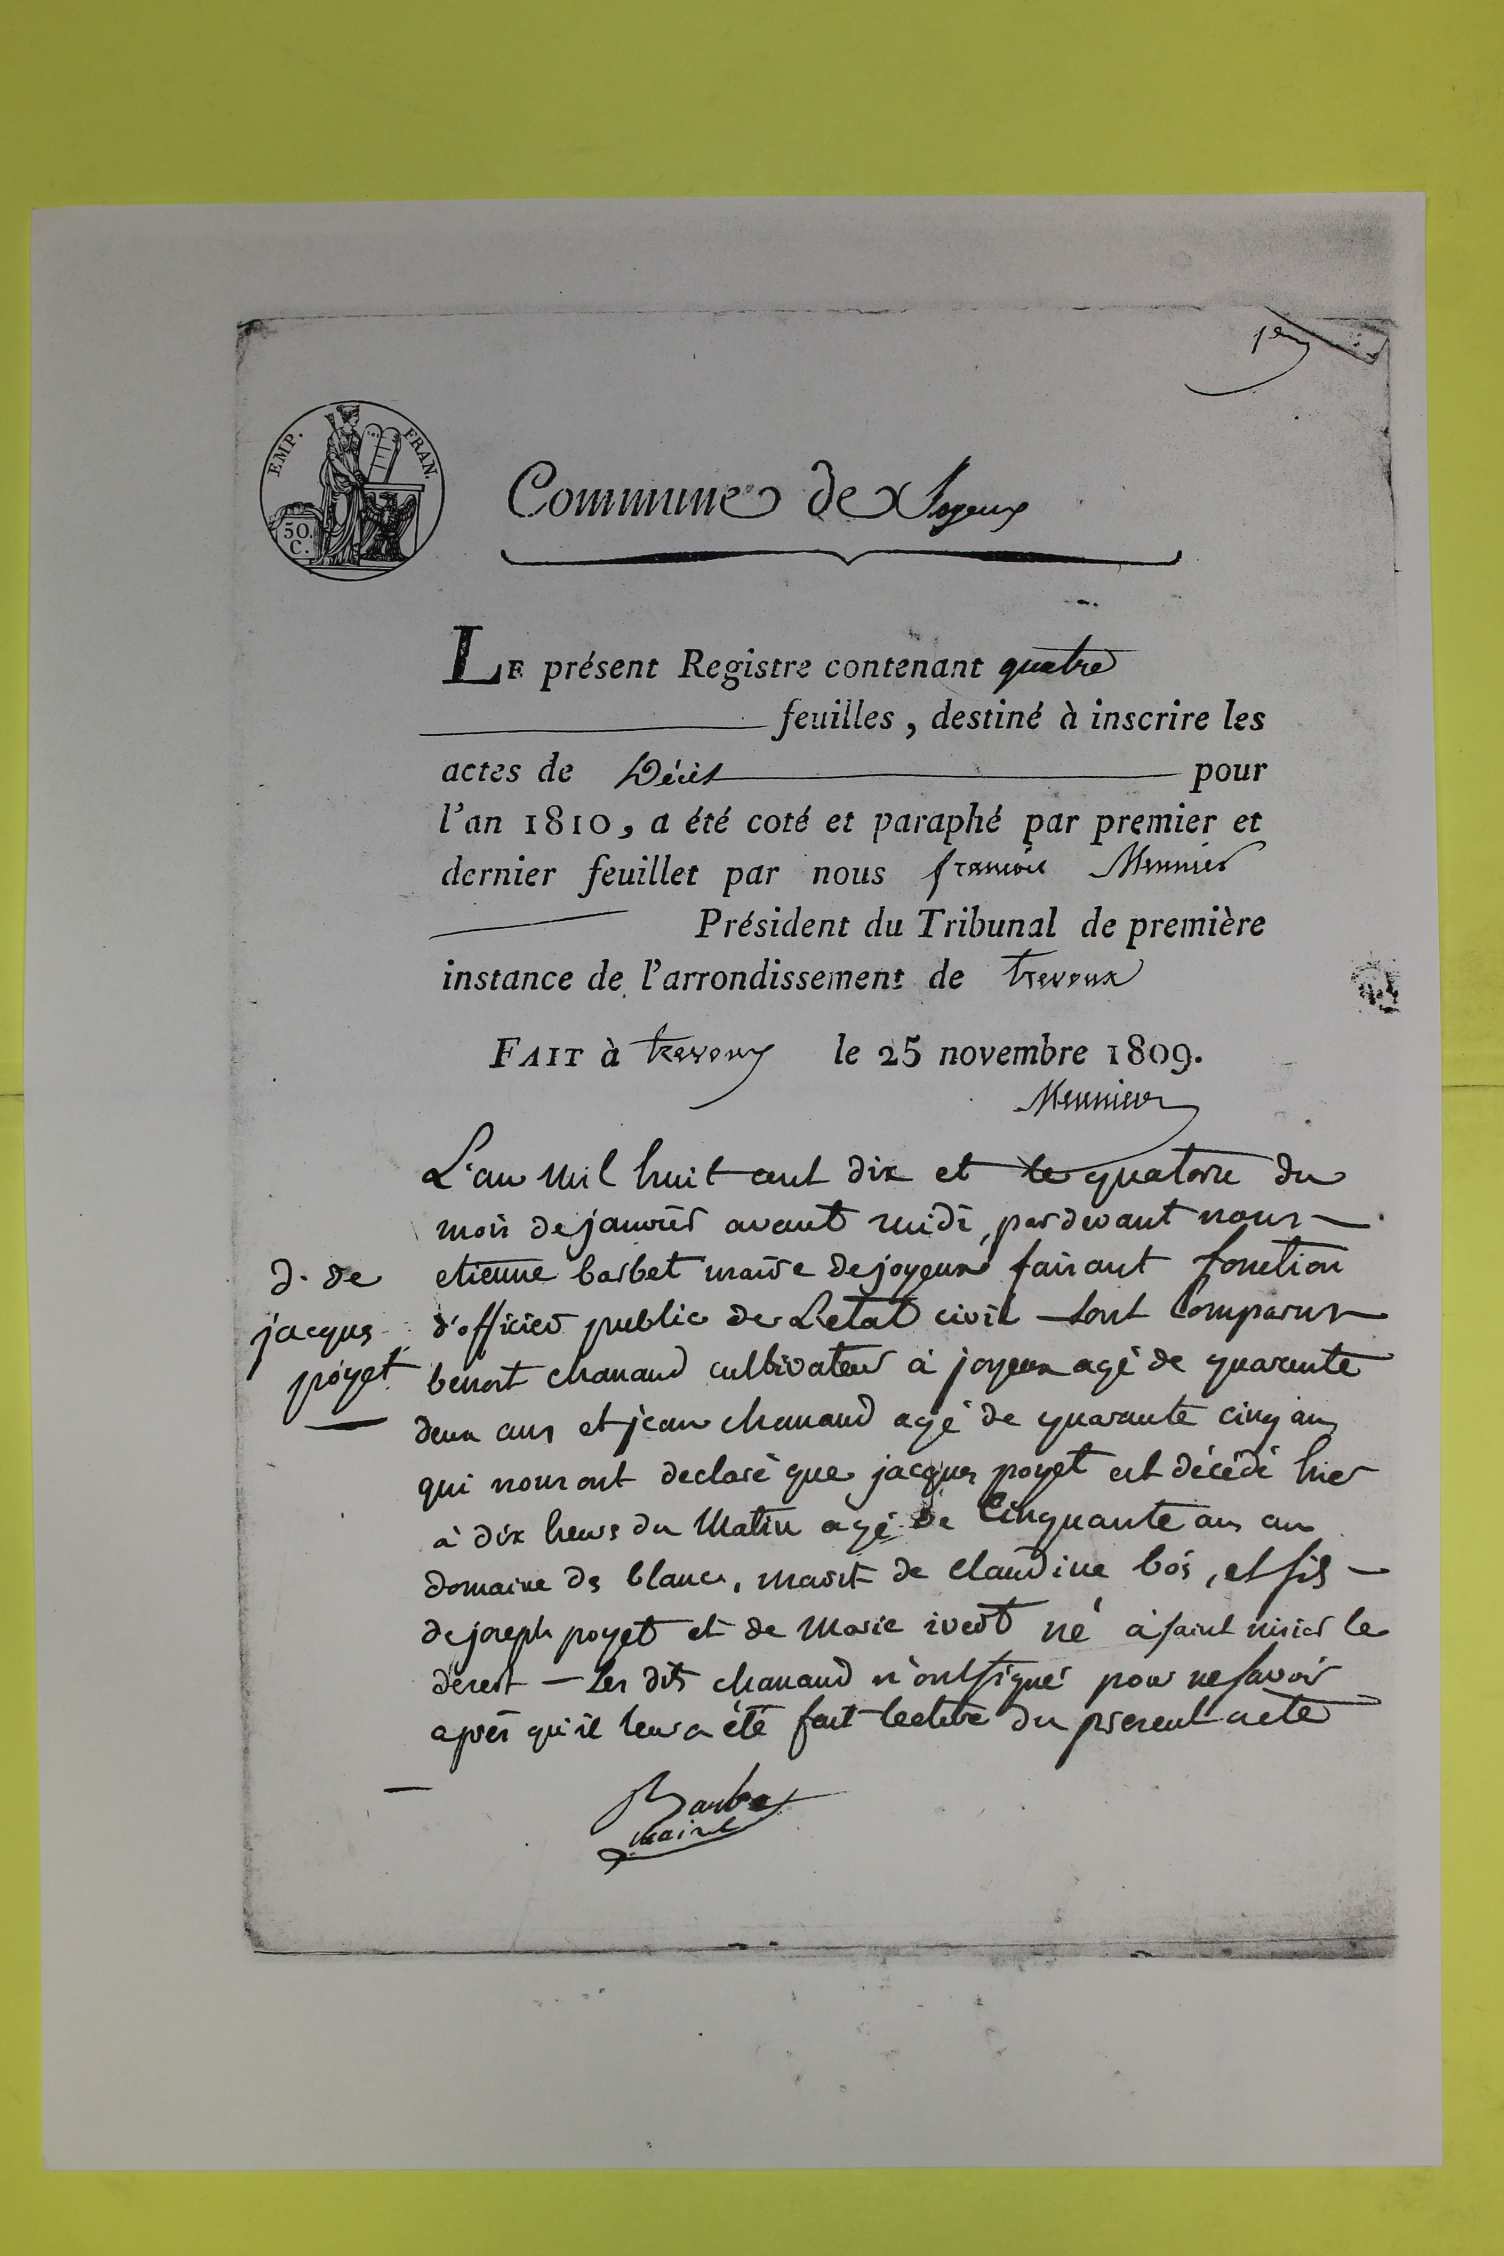 1er
EMP. FRAN.
50.
C.
Commune de Joyeux
LE présent Registre contenant quatre
feuilles, destiné à inscrire les
actes de Décès pour
l'an 1810, a été coté et paraphé par premier et
dernier feuillet par nous françois Meunier
Président du Tribunal de première
instance de l'arrondissement de trevoux
FAIT à trevoux le 25 novembre 1809.
Meunier
L'an mil huit cent dix et le quatorze du
mois de janvier avant midi, pardevant nous
etienne barbet maire de joyeux faisant fonction
d'officier public de L'etat civil sont Comparus
benoit chanaud cultivateur à joyeux agé de quarante
deux ans et jean chanaud agé de quarante cinq ans
qui nous ont declaré que jacques poyet est décédé hier
à dix heures du Matin agé de Cinquante ans au
domaine des blancs, marit de claudine bos, et fils
de joseph poyet et de Marie ivert né à saint nisier le
desert - Les dits chanaud n'ont signé pour ne savoir
après qu'il leur a été fait lecture du present acte
d. de
jacques
poyet
Barbet
maire